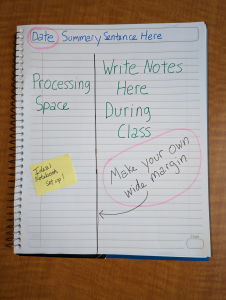 Date Summary Sentence Here
Processing
Space
Write Notes
Here
During
Class
Ideal
Notebook
Set up!
Make your own
wide margin